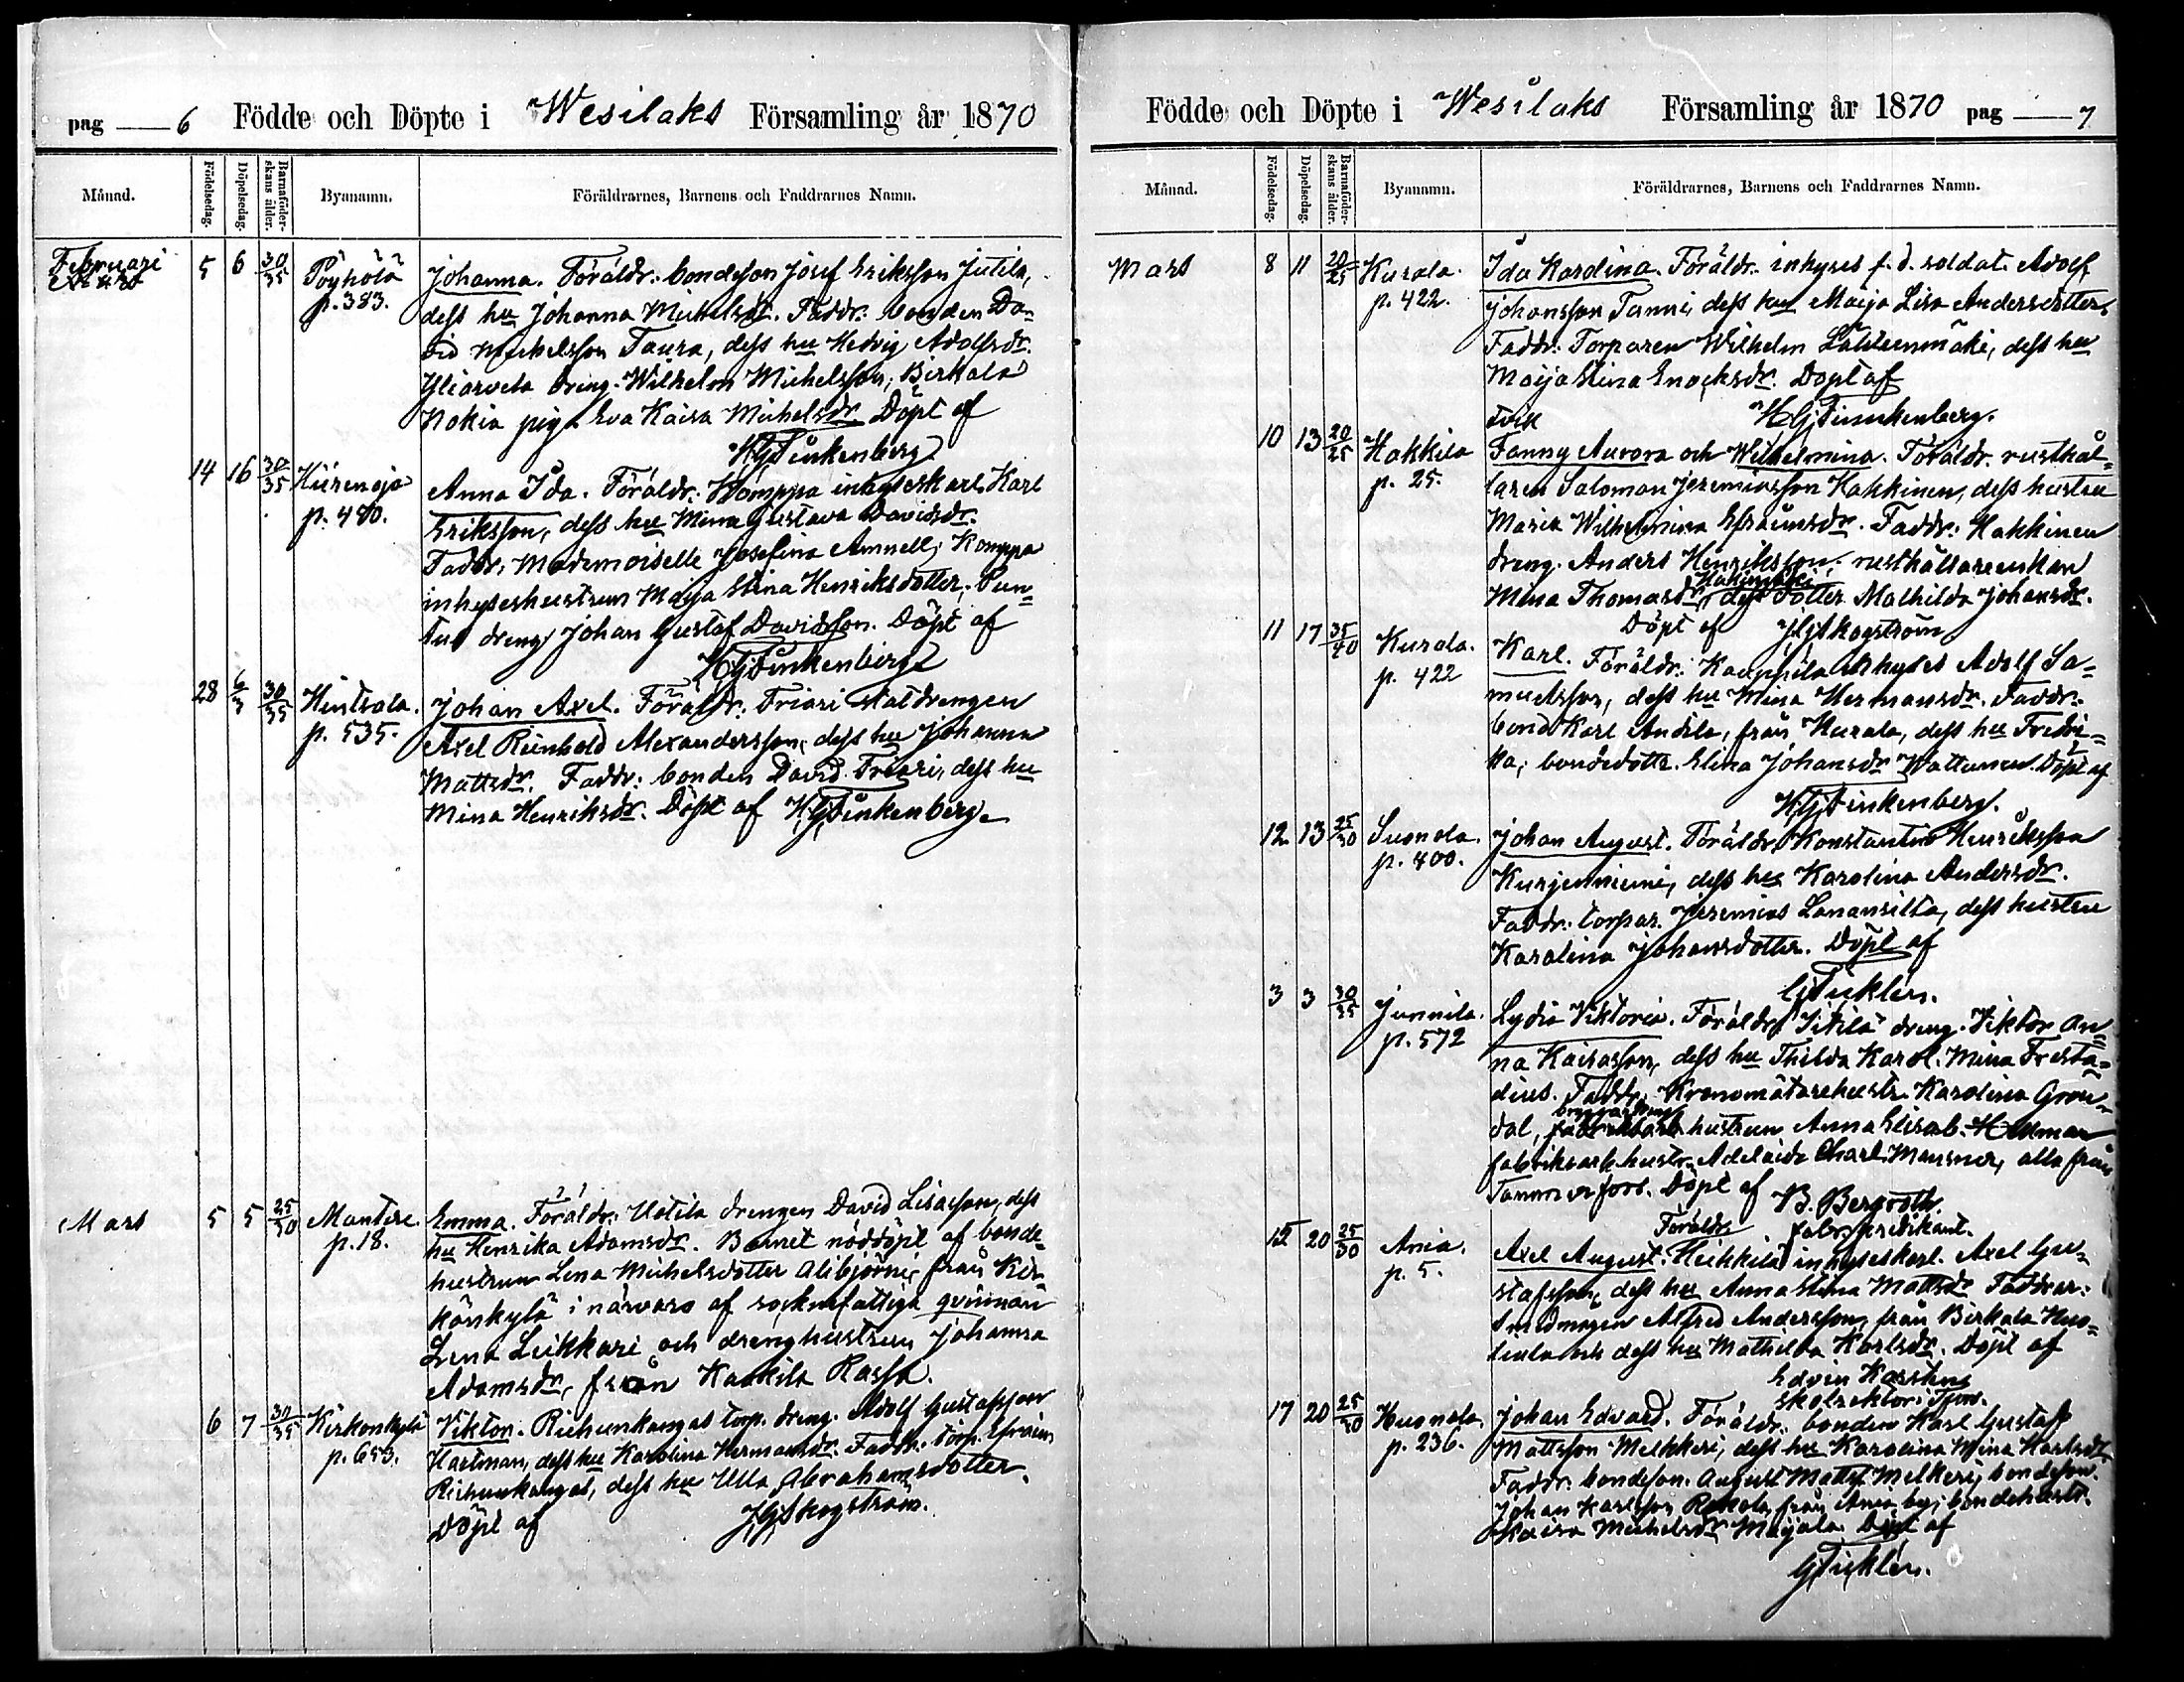 pag 6 Födde och Döpte i Wesilaks Församling år 1870
Månad. Födelsedag. Döpelsedag. Barnaföderskans ålder. Bynamn. Föräldrarnes, Barnens och Faddrarnes Namn.
Februari 5 6 30/35 Pöyhölä Johanna. Föräldr: bondeson Josef Eriksson Jutila,
p. 383. dess hu Johanna Michelsdr. Faddr: bonden Da-
vid Michelsson Taura, dess hu Hedvig Adolfsdr.
Yliarvela dräng. Wilhelm Michelsson, Birkala
Nokia piga Eva Kaisa Michelsdr. Döpt af
HGTinkenberg
14 16 30/35 Hiirenoja Anna Ida. Föräldr: Komppa inhyseskarl Karl
p. 480. Eriksson, dess hu Mina Gustava Davidsdr.
Faddr: Mademoiselle Josefina Amnell, Komppa
inhyseshustrun Maja Stina Henriksdotter, Pun-
tus dreng Johan Gustaf Davidsson. Döpt af
HGTinkenberg
28 6/3 30/35 Hintsala. Johan Axel. Föräldr: Friari statdrengen
p. 535. Axel Reinhold Alexandersson, dess hu Johanna
Mattsdr. Faddr: bonden David Friari, dess hu
Mina Henriksdr. Döpt af HGTinkenberg.
Mars 5 5 25/30 Mantere. Emma. Föräldr: Uotila drengen David Lisasson, dess
p. 18. hu Henrika Adamsdr. Barnet nöddöpt af bonde-
hustrun Lena Michelsdotter Alibjörni, från Kir-
konkylä i närvaro af socknefattiga qvinnan
Lena Leikkari och drenghustrun Johanna
Adamsdr, från Kaakila Rassa.
6 7 30/35 Kirkonkylä Viktor. Riehunkangas torp. dreng. Adolf Gustafsson
p. 653. Hartman, dess hu Karolina Hermansdr. Faddr: torp. Efraim
Riehunkangas, dess hu Ulla Abrahamsdotter.
Döpt af JGSkogström.
Födde och Döpte i Wesilaks Församling år 1870 pag 7
Månad. Födelsedag. Döpelsedag. Barnaföderskans ålder. Bynamn. Föräldrarnes, Barnens och Faddrarnes Namn.
Mars 8 11 20/25 Kurala. Ida Karolina. Föräldr: inhyses f.d. soldat. Adolf
p. 422. Johansson Tanni, dess hu Maija Lisa Andersdotter,
Faddr: Torparen Wilhelm Lähteenmäki, dess hu
Maija Stina Enocksdr. Döpt af
tvil. HGTinkenberg.
10 13 20/25 Hakkila Fanny Aurora och Wilhelmina. Föräldr. rusthål-
p. 25. laren Salomon Jeremiasson Hakkinen, dess hustru
Maria Wilhelmina Efraimsdr. Faddr: Hakkinen
dreng. Anders Henriksson, rusthållareenkan
Mina Thomasdr, dess dotter Mathilda Johansdr.
Döpt af JGSkogström
11 17 35/40 Kurala. Karl. Föräldr: Kauppila inhyses Adolf Sa-
p. 422 muelsson, dess hu Mina Hermansdr. Faddr:
bond. Karl Andila, från Kurala, dess hu Fredri-
ka, bondedotte. Elina Johansdr Wattunen. Döpt af
HGTinkenberg.
12 13 25/30 Suonola. Johan August. Föräldr: Konstantin Henriksson
p. 400. Kurjenniemi, dess hu Karolina Andersdr.
Faddr: torpar. Jeremias Lanansilta, dess hustru
Karolina Johansdotter. Döpt af
GTicklén.
3 3 30/35 Junnila. Lydia Viktoria. Föräldr: Iitilä dreng. Viktor An-
p. 572 na Kaisasson, dess hu Thilda Karol. Mina Fresta-
dius. Faddr: Kronomätarehustr. Karolina Grön-
dal, hustrun Anna Elisab. Hellman
fabriksarb hustr. Adelaide Charl. Mansner, alla från
Tammerfors. Döpt af B. Bergroth.
Föräldr. fabr. predikant.
15 20 25/30 Ania. Axel August. Heikkilä inhyseskarl. Axel Gu-
p. 5. stafsson, dess hu Anna Stina Mattsdr Faddrar:
Smedmagen Alfred Andersson, från Birkala
och dess hu Mathilda Karlsdr. Döpt af
Edvin Karsten
skolrektor i Tfors.
17 20 25/30 Huonola. Johan Edvard. Föräldr: bonden Karl Gustaf
p. 236. Mattsson Melkkeri, dess hu Karolina Mina Karlsdr.
Faddr. bondeson. August Matts. Melkeri, bondeson.
Johan Karlsson Rekola, från Ania by, bondehustr.
Kaisa Michelsdr Maijala. Döpt af
GTicklén.